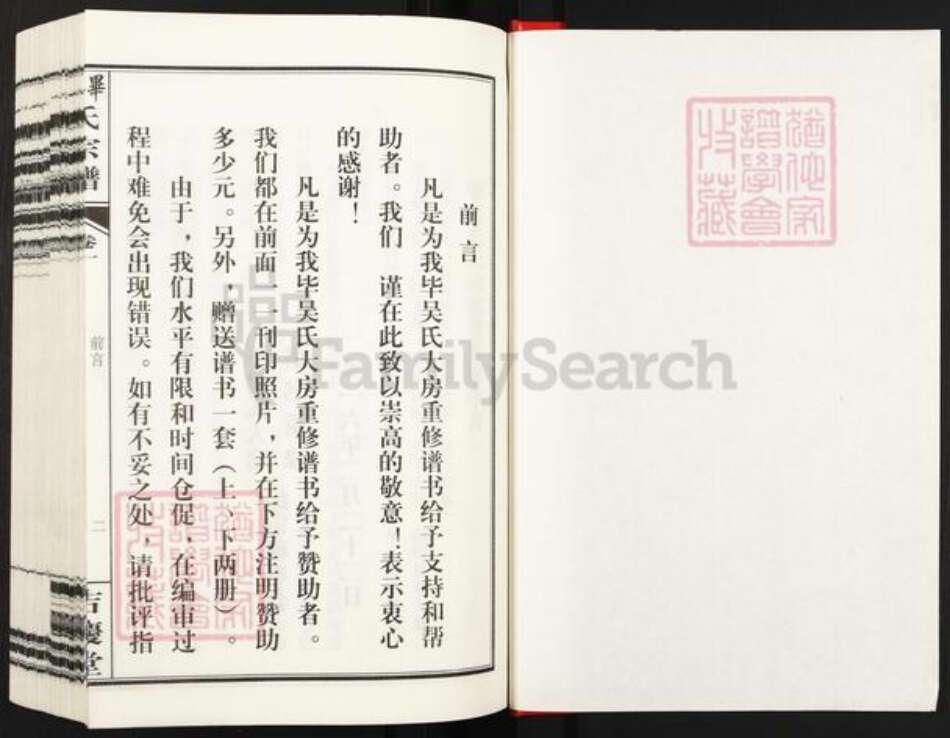 前言
凡是为我毕吴氏大房重修谱书给予支持和帮
助者。我们 谨在此致以崇高的敬意！表示衷心
的感谢！
凡是为我毕吴氏大房重修谱书给予赞助者。
我们都在前面一一刊印照片，并在下方注明赞助
多少元。另外，赠送谱书一套（上、下两册）。
由于，我们水平有限和时间仓促，在编审过
程中难免会出现错误。如有不妥之处，请批评指
畢氏宗譜
卷一
前言
二
吉慶堂
FamilySearch
猶他家
譜學會
收藏
猶他家
譜學會
收藏